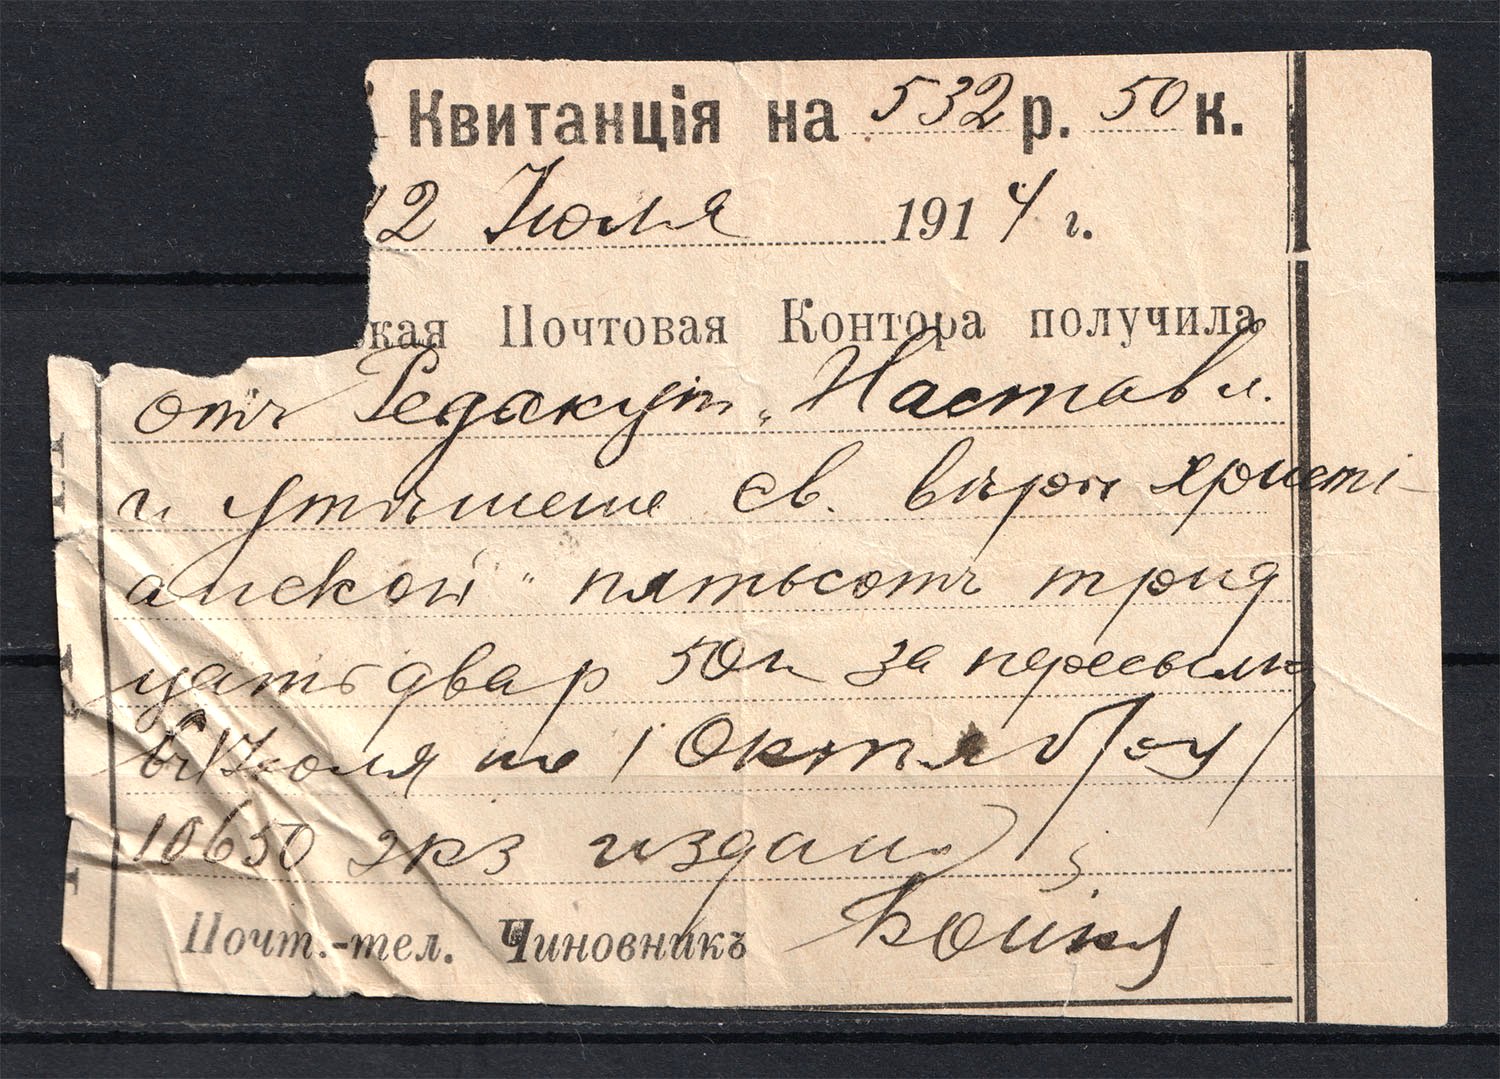 Квитанція на 532 р. 50 к.
12 Іюля 1914 г.
кая Почтовая Контора получила
отъ Редакціи „Наставл.
и утѣшеніе Св. вѣры христі-
анской" пятьсотъ трид
цать два р 50 к за пересылку
Іюля по 1 Октября
10650 экз издан
Почт.-тел. Чиновникъ